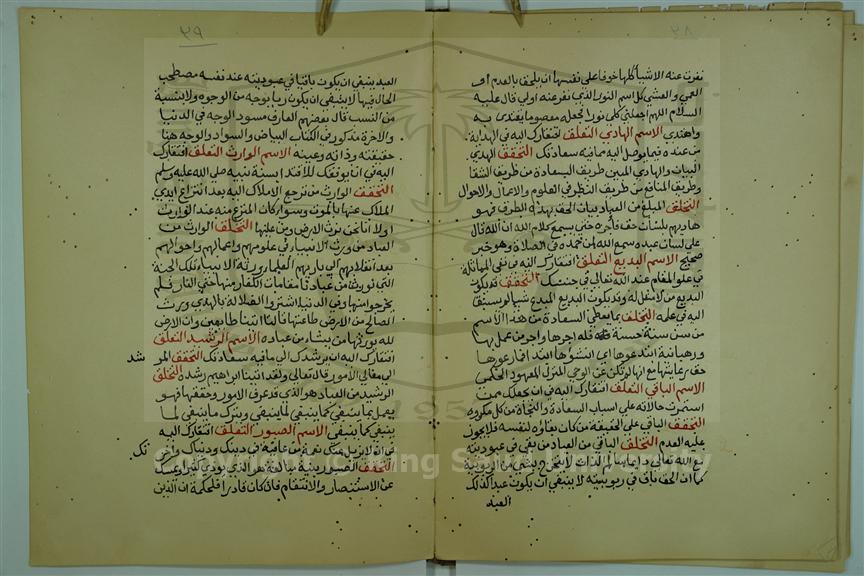 نفرت عنه الاشيا كلها خوفا على نفسها ان يلحق بالعدم او
العمي والعشي كل اسم النور الذي نفر عنه اولي قال عليه
السلام اللهم اجعلني كلي نورا بجعله معصوما يقتدى به
واهتدى الاسم الهادي التعلق افتقارك اليه في الهداية
من عنده فيما يوصل اليه بما فيه سعادتك التحقق الهدي
البيان والهادي المبين طريق السعادة من طريق الشقا
وطريق المنافع من طريق النظر في العلوم والاعمال والاحوال
التخلق المبلغ من العباد بيان الحق بهذه الطرق فهو
هاديهم بلسان حق فاجره حتى يسمع كلام الله ان الله قال
على لسان عبده سمع الله لمن حمده في الصلاة وهو خبر
صحيح الاسم البديع التعلق افتقارك اليه في نفي المماثلة
في علو المقام عند الله تعالى في جنسك التحقق قد يكون
البديع من لا مثل له وقد يكون البديع المبدع شيا لم يسبق
اليه في علمه التخلق بما يعطي السعادة من هذا الاسم
من سن سنة حسنة فله اجرها واجر من عمل بها
ورهبانية ابتدعوها اي انشؤها ابتدا فما رعوها
حق رعايتها مع انها لم تكن عن الوحي المنزل المعهود الحكمي
الاسم الباقي التعلق افتقارك اليه في ان يجعلك ممن
استمرت حالاته على اسباب السعادة والنجاة من كل مكروه
التحقق الباقي على الحقيقة من كان بقاؤه لنفسه فلا يجوز
عليه العدم التخلق الباقي من العباد من بقي في عبوديته
مع الله تعالى
كما ان الحق باق في ربوبيته لا ينبغي ان يكون عبدا لذلك
العبد
٢٩
العبد ينبغي ان يكون باقيا في عبوديته عند نفسه مصطحب
الحال فيها لا ينبغي ان يكون ربا بوجه من الوجوه ولا بنسبة
من النسب قال بعضهم العارف مسود الوجه في الدنيا
والاخرة مذكور في الكتاب البياض والسواد والوجه هنا
حقيقته وذاته وعينه الاسم الوارث التعلق افتقارك
اليه في ان يوفقك للاقتدا بسنة نبيه صلى الله عليه وسلم
التحقق الوارث من ترجع الاملاك اليه بعد انتزاع ايدي
الملاك عنها بالموت وسوا كان المنتزع منه عند الوارث
اولا انا نحن نرث الارض ومن عليها التخلق الوارث من
العباد من ورث الانبيا في علومهم واعمالهم واحوالهم
بعد انقلابهم الى باريهم العلماء ورثة الانبياء تلك الجنة
التي نورث من عبادنا مقامات الكفار منها حتى النار فلم
يخرجوا منها وفي الدنيا اشتروا الضلالة بالهدى ويرث
الصالح من الارض طاعتها قالتا اتينا طايعين وان الارض
لله يورثها من يشاء من عباده الاسم الرشيد التعلق
افتقارك اليه ان يرشدك الى ما فيه سعادتك التحقق المر شد
الى معالي الامور قال تعالى ولقد اتينا ابراهيم رشده التخلق
الرشيد من العباد هو الذي قد عرف الامور وحققها فهو
يعمل بما ينبغي كما ينبغي لما ينبغي ويترك ما ينبغي لما
ينبغي كما ينبغي الاسم الصبور التعلق افتقارك اليه
في ان لا يزيل عنك نعمة من عافية في دينك ودنياك وان تك
التحقق الصبور بنية مبالغة هو الذي يوذى كثيرا ويمسك
عن الاستنصار والانتقام فان كان قادرا فلحكمة ان الذين
Copyright © King Saud University